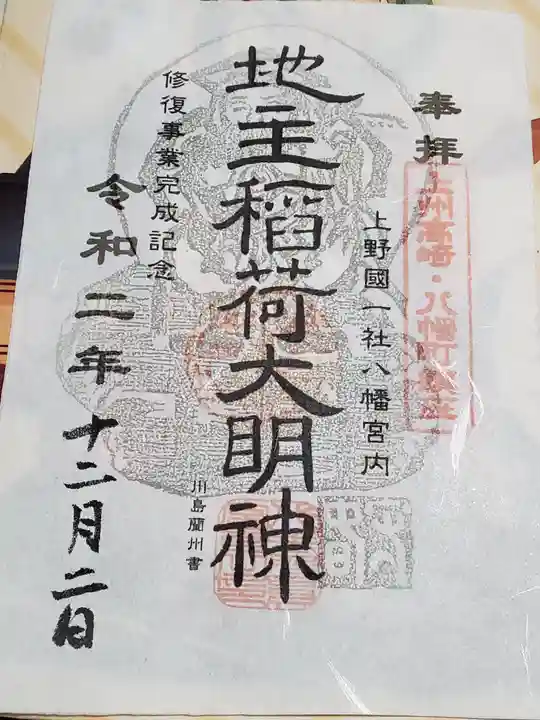 奉拝
上州高崎・八幡町鎮座
上野國一社八幡宮内
地主稲荷大明神
修復事業完成記念
令和二年十二月二日
川島蘭州書